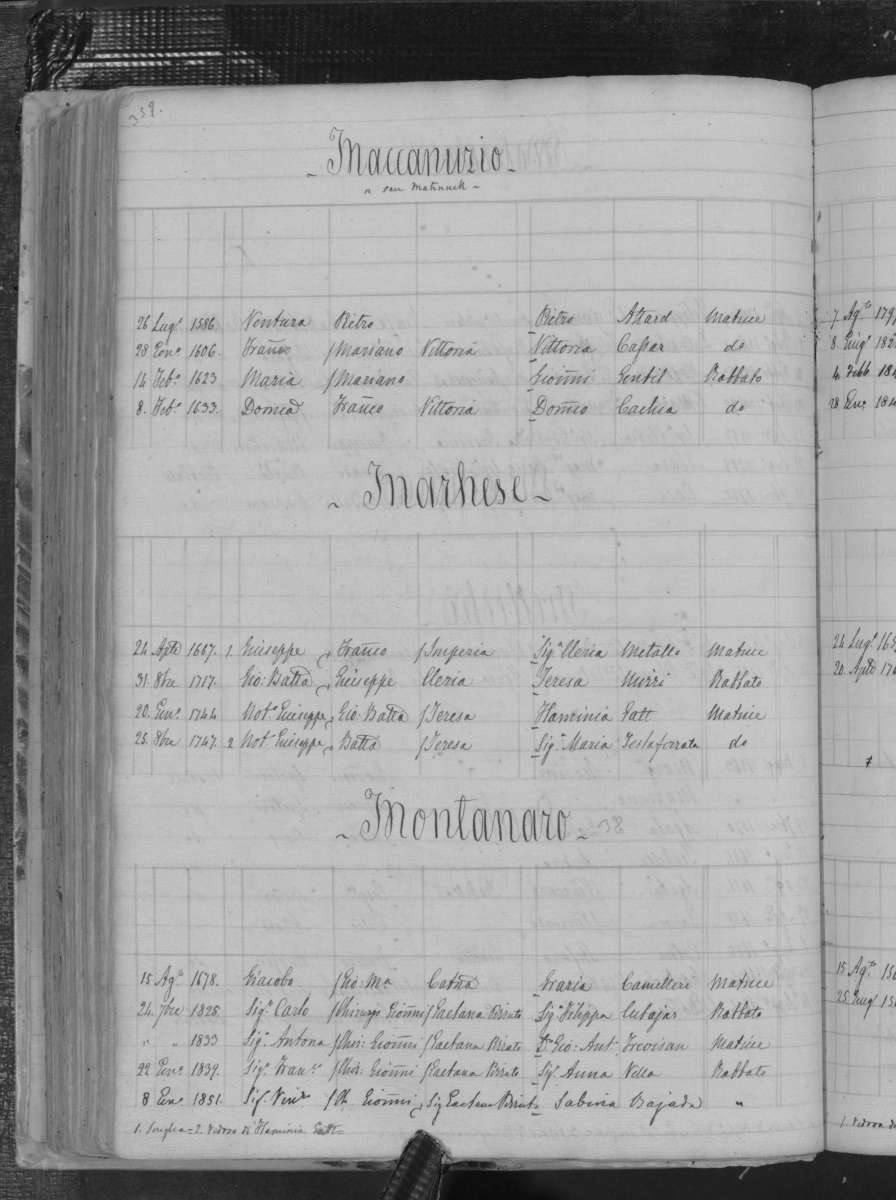 359.
- Maccanuzio -
seu Matinuek -
26 Lug. 1586. Ventura Pietro Pietro Attard Matrice
28 Genº 1606. Franco f Mariano Vittoria Vittoria Cassar do
14 Feb. 1623 Maria f Mariano Gioñni Gentil Rabbato
8. Feb. 1633. Domca Franco Vittoria Domco Cachia do
- Marhese -
24 Agto 1667. 1. Giuseppe Franco f Imperia Sigra Cleria Metallo Matrice
31. 8bre 1717. Gio: Batta Giuseppe Cleria Teresa Mirri Rabbato
20. Genº 1744 Notº Giuseppe Gio: Batta f Teresa Flaminia Fatt Matrice
25. 8bre 1747. 2 Notº Giuseppe Batta f Teresa Sigra Maria Testaferrata do
- Montanaro -
15 Agto 1678. Giacobo f Gio: Ma Catna Grazia Camilleri Matrice
24. 7bre 1825. Sigr Carlo f Chirurgo Gioñni f Gaetana Bizuto Siga Filippa Cutajar Rabbato
" " 1833 Siga Antona f Chir: Gioñni f Gaetana Bizuto Dr Gio: Ant. Trevisan Matrice
22 Genº 1839. Sigr Franco f Chir: Gioñni f Gaetana Bizuto Siga Anna Vella Rabbato
8 Genº 1851. Sigr Vinzo Gioñni Sig Gaetana Bizuto Sabina Bajada "
1. Senglea - 2. Vedovo di Flaminia Fatt -
7 Agto 179
8.
4 Febb 18
28 Genº 18
24 Lugº 16
20. Agto 17
15 Agto 15
25.
1. Vedova di